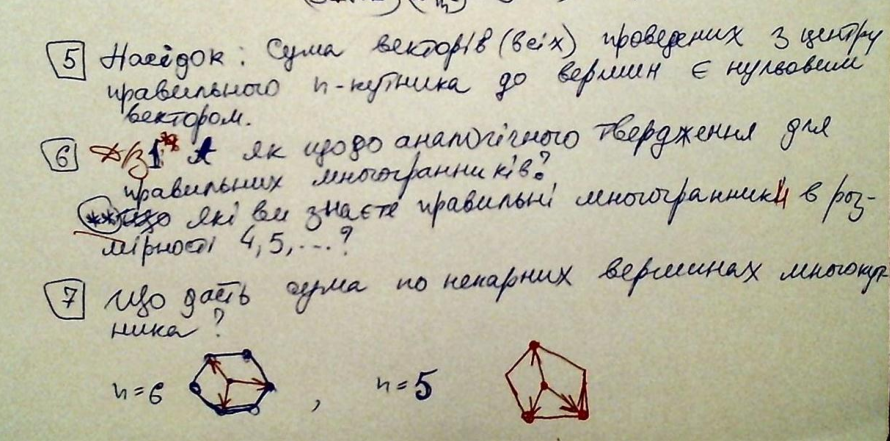 5 Наслідок: Сума векторів (всіх) проведених з центру
правильного n-кутника до вершин є нульовим
вектором.
6 ДЗ1** А як щодо аналогічного твердження для
правильних многогранників?
** які ви знаєте правильні многогранники в роз-
мірності 4, 5, ...?
7 Що дасть сума по непарних вершинах многокут-
ника?
n=6 , n=5